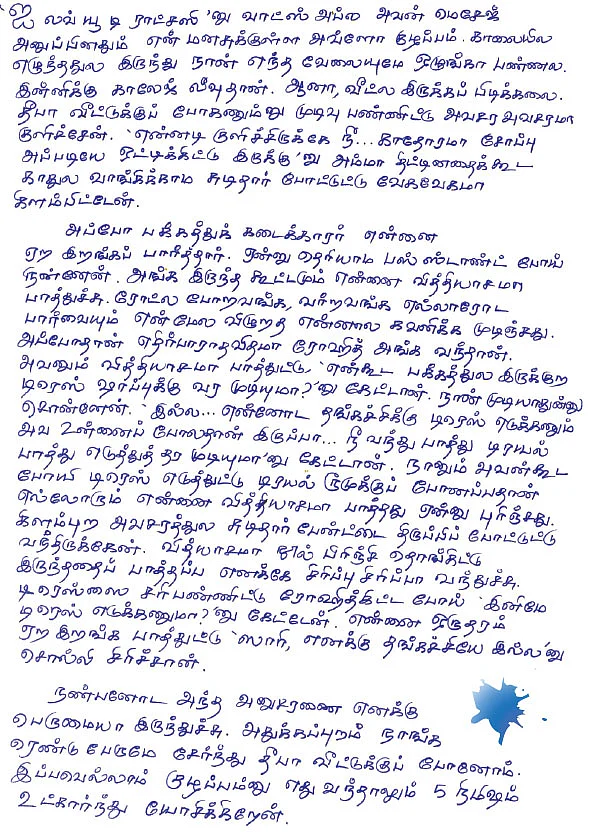 ஐ லவ் யூ டி ராட்சஸி 'னு வாட்ஸ் அப்ல அவன் மெசேஜ்
அனுப்பினதும் என் மனசுக்குள்ள அவ்ளோ குழப்பம். காலையில
எழுந்ததுல இருந்து நான் எந்த வேலையுமே ஒழுங்கா பண்ணல.
இன்னிக்கு காலேஜ் லீவுதான். ஆனா, வீட்ல இருக்கப் பிடிக்கலை.
தீபா வீட்டுக்குப் போகணும்னு முடிவு பண்ணிட்டு அவசர அவசரமா
குளிச்சேன். 'என்னடி குளிச்சிருக்கே நீ... காதோரமா சோப்பு
அப்படியே ஒட்டிக்கிட்டு இருக்கு'னு அம்மா திட்டினதைக்கூட
காதுல வாங்கிக்காம சுடிதார் போட்டுட்டு வேகவேகமா
கிளம்பிட்டேன்.
அப்போ பக்கத்துக் கடைக்காரர் என்னை
ஏற இறங்கப் பார்த்தார். ஏன்னு தெரியாம பஸ் ஸ்டாண்ட் போய்
நின்னேன். அங்க இருந்த கூட்டமும் என்னை வித்தியாசமா
பாத்துச்சு. ரோட்ல போறவங்க, வர்றவங்க எல்லாரோட
பார்வையும் என்மேல விழுறத என்னால கவனிக்க முடிஞ்சது.
அப்போதான் எதிர்பாராதவிதமா ரோஹித் அங்க வந்தான்.
அவனும் வித்தியாசமா பாத்துட்டு, 'என்கூட பக்கத்துல இருக்குற
டிரெஸ் ஷாப்புக்கு வர முடியுமா?'னு கேட்டான். நான் முடியாதுன்னு
சொன்னேன். 'இல்ல... என்னோட தங்கச்சிக்கு டிரெஸ் எடுக்கணும்
அவ உன்னைப் போலதான் இருப்பா... நீ வந்து பாத்து டிரயல்
பாத்து எடுத்துத் தர முடியுமா'னு கேட்டான். நானும் அவன்கூட
போயி டிரெஸ் எடுத்துட்டு டிரயல் ரூமுக்குப் போனப்பதான்
எல்லோரும் என்னை வித்தியாசமா பாத்தது ஏன்னு புரிஞ்சது.
கிளம்புற அவசரத்துல சுடிதார் பேன்ட்டை திருப்பிப் போட்டுட்டு
வந்திருக்கேன். வித்யாசமா நூல் பிரிஞ்சி தொங்கிட்டு
இருந்ததைப் பாத்தப்ப எனக்கே சிரிப்பு சிரிப்பா வந்துச்சு.
டிரெஸ்ஸை சரிபண்ணிட்டு ரோஹித்கிட்ட போய் 'இனிமே
டிரெஸ் எடுக்கணுமா?'னு கேட்டேன். என்னை ஒருதரம்
ஏற இறங்க பாத்துட்டு 'ஸாரி, எனக்கு தங்கச்சியே இல்ல'னு
சொல்லி சிரிச்சான்.
நண்பனோட அந்த அனுசரணை எனக்கு
பெருமையா இருந்துச்சு. அதுக்கப்புறம் நாங்க
ரெண்டு பேருமே சேர்ந்து தீபா வீட்டுக்குப் போனோம்.
இப்பவெல்லாம் குழப்பம்னு எது வந்தாலும் 5 நிமிஷம்
உட்கார்ந்து யோசிக்கிறேன்.